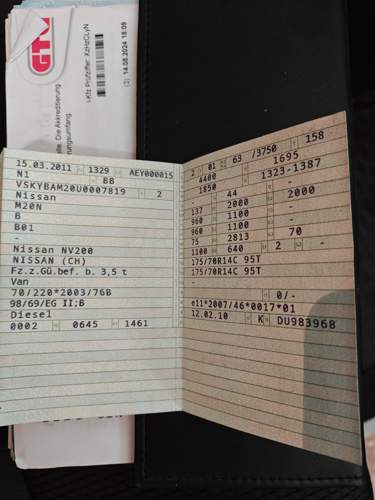 GTÜ
14.08.2024 18.09
15.03.2011 1329 AEY000015
N1 BB
VSKYBAM20U0007819 2
Nissan
M20N
B
B01
-
Nissan NV200
NISSAN (CH)
Fz.z.Gü.bef. b. 3,5 t
Van
70/220*2003/76B
98/69/EG II;B
Diesel
0002 0645 1461
2 01 63 /3750 158
4400 1695
1850 1323-1387
- 44 -
137 2000 2000
960 1100 -
960 1100 -
75 2813 70
1100 640 2 -
175/70R14C 95T
175/70R14C 95T
-
- 0/-
e11*2007/46*0017*01
12.02.10 K DU983968